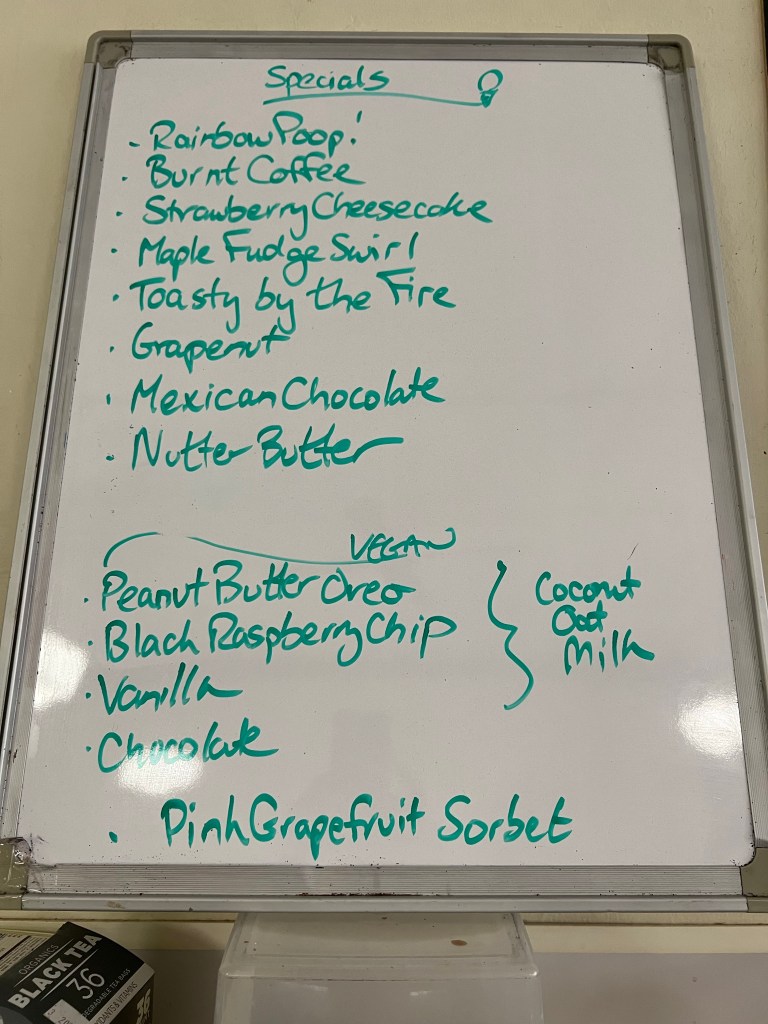 Specials
- Rainbow Poop!
· Burnt Coffee
· Strawberry Cheesecake
· Maple Fudge Swirl
· Toasty by the Fire
· Grapenut
· Mexican Chocolate
· Nutter Butter
VEGAN
· Peanut Butter Oreo
· Black Raspberry Chip
· Vanilla
· Chocolate
Coconut
Oat
Milk
· Pink Grapefruit Sorbet
ORGANICS
BLACK TEA
36
DEGRADABLE TEA BAGS